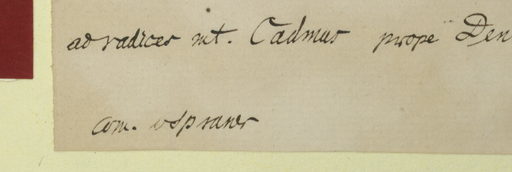 ad radices mt. Cadmus prope Den
com.